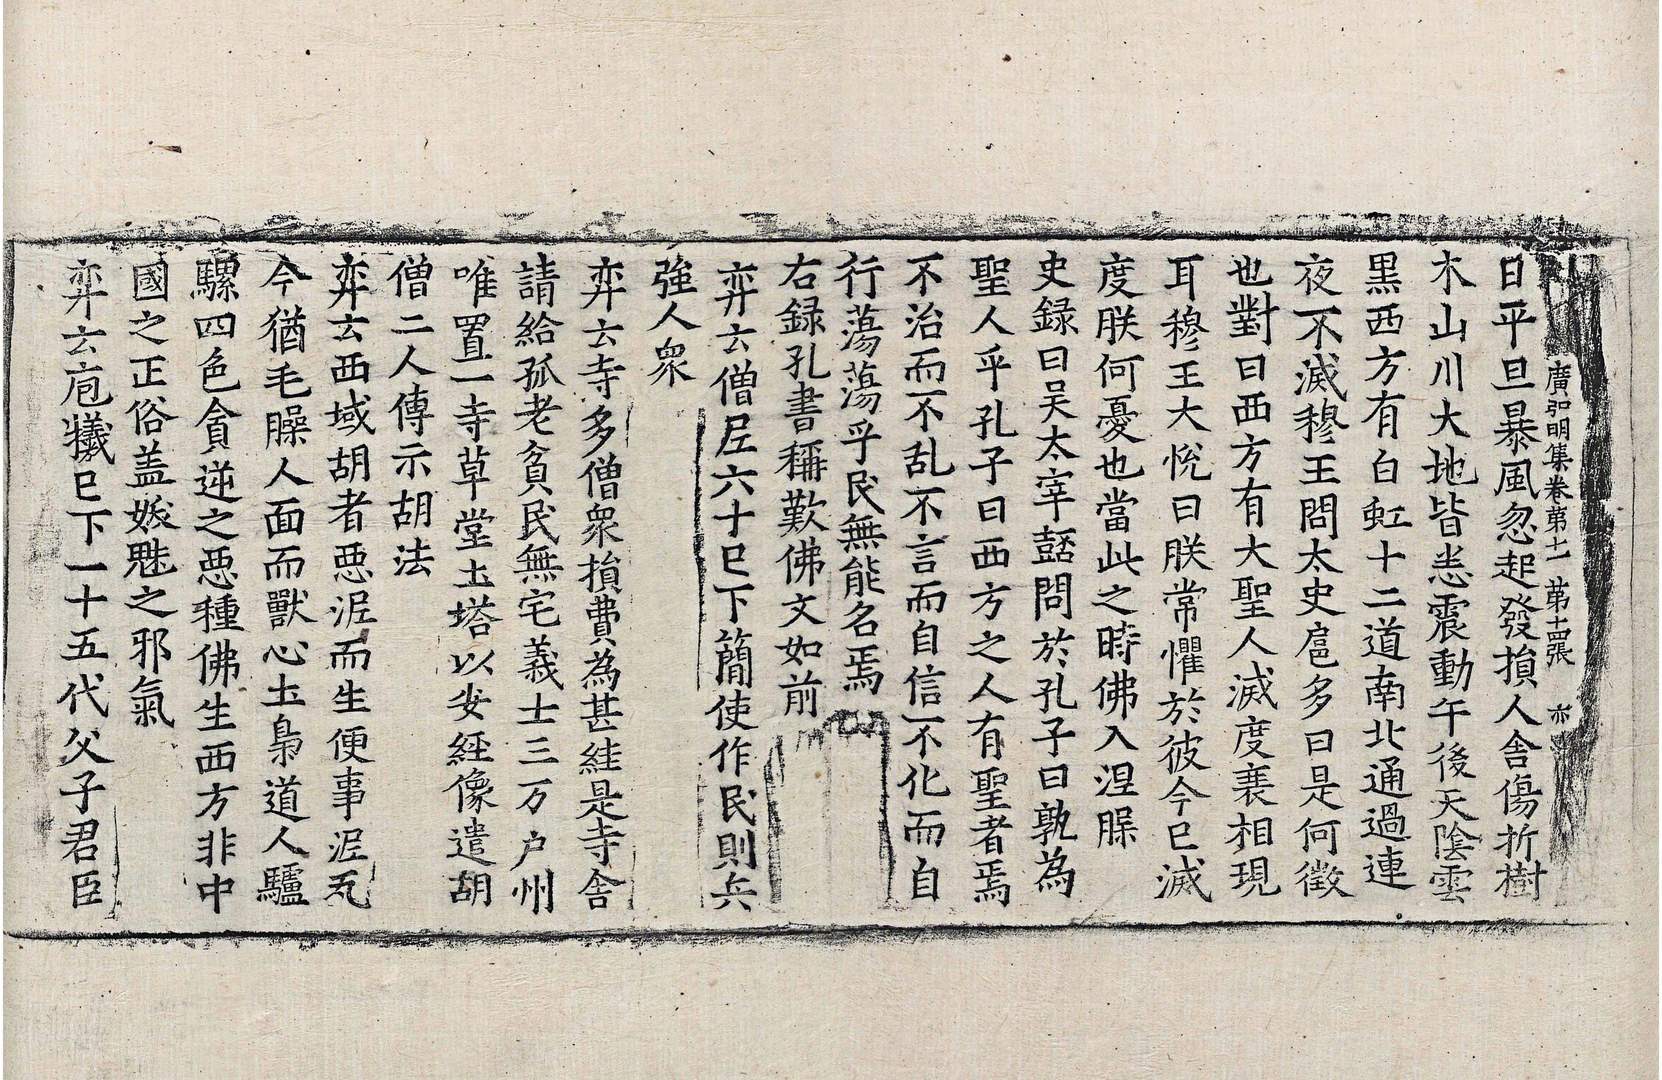 廣弘明集卷第十一 第十四張 亦
日平旦暴風忽起發損人舍傷折樹
木山川大地皆悉震動午後天陰雲
黑西方有白虹十二道南北通過連
夜不滅穆王問太史扈多曰是何徵
也對曰西方有大聖人滅度襄相現
耳穆王大悅曰朕常懼於彼今已滅
度朕何憂也當此之時佛入涅槃
史錄曰吳太宰嚭問於孔子曰孰為
聖人乎孔子曰西方之人有聖者焉
不治而不乱不言而自信不化而自
行蕩蕩乎民無能名焉
右錄孔書稱歎佛文如前
弈云僧尼六十已下簡使作民則兵
強人眾
弈云寺多僧眾損費為甚絓是寺舍
請給孤老貧民無宅義士三万户州
唯置一寺草堂土塔以安經像遣胡
僧二人傳示胡法
弈云西域胡者惡泥而生便事泥瓦
今猶毛臊人面而獸心土梟道人驢
騾四色貪逆之惡種佛生西方非中
國之正俗盖妖魅之邪氣
弈云庖犧已下一十五代父子君臣